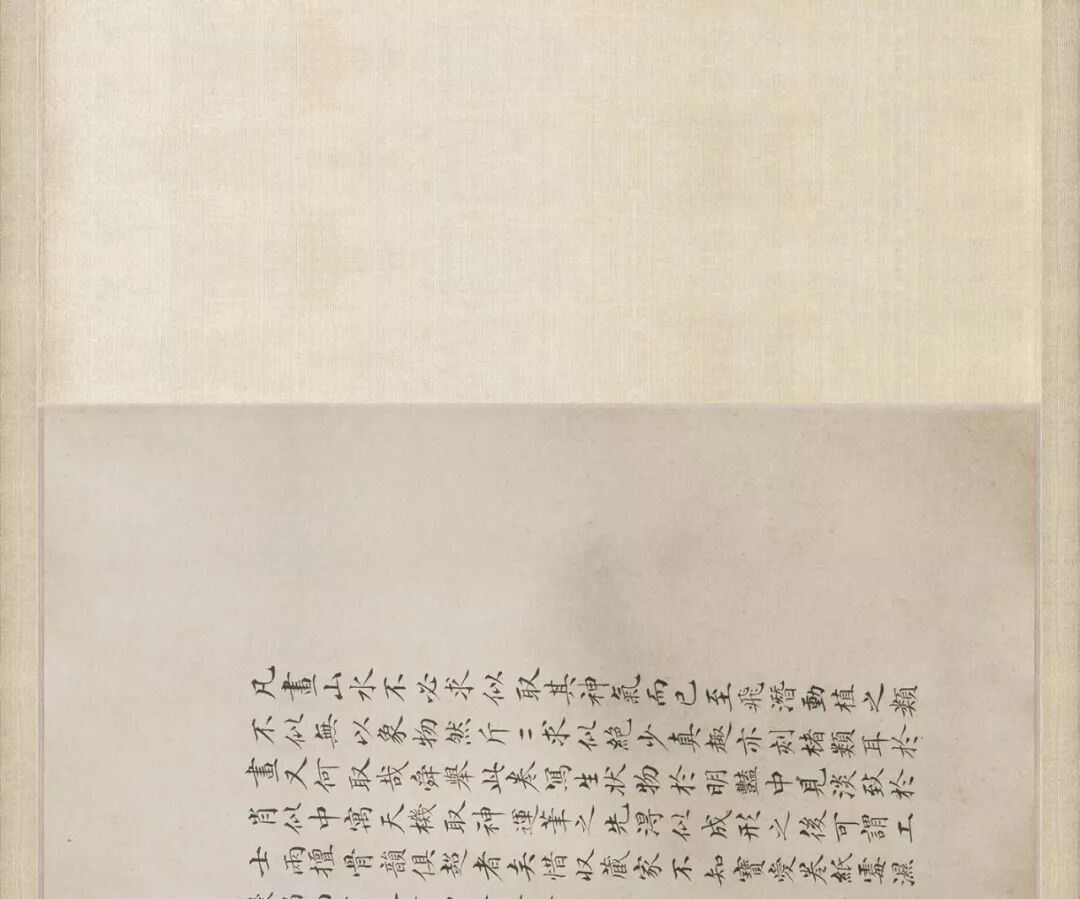 凡畫山水不必求似取其神氣而已至飛潛動植之類
不似無以象物然斤〻求似絕少真趣亦刻楮類耳於
畫又何取哉舜舉此卷寫生狀物於明豔中見淡致於
肖似中寓天機取神運筆之先得似成形之後可謂工
士兩擅骨韻俱超者矣惜収藏家不知寶愛卷紙霉濕